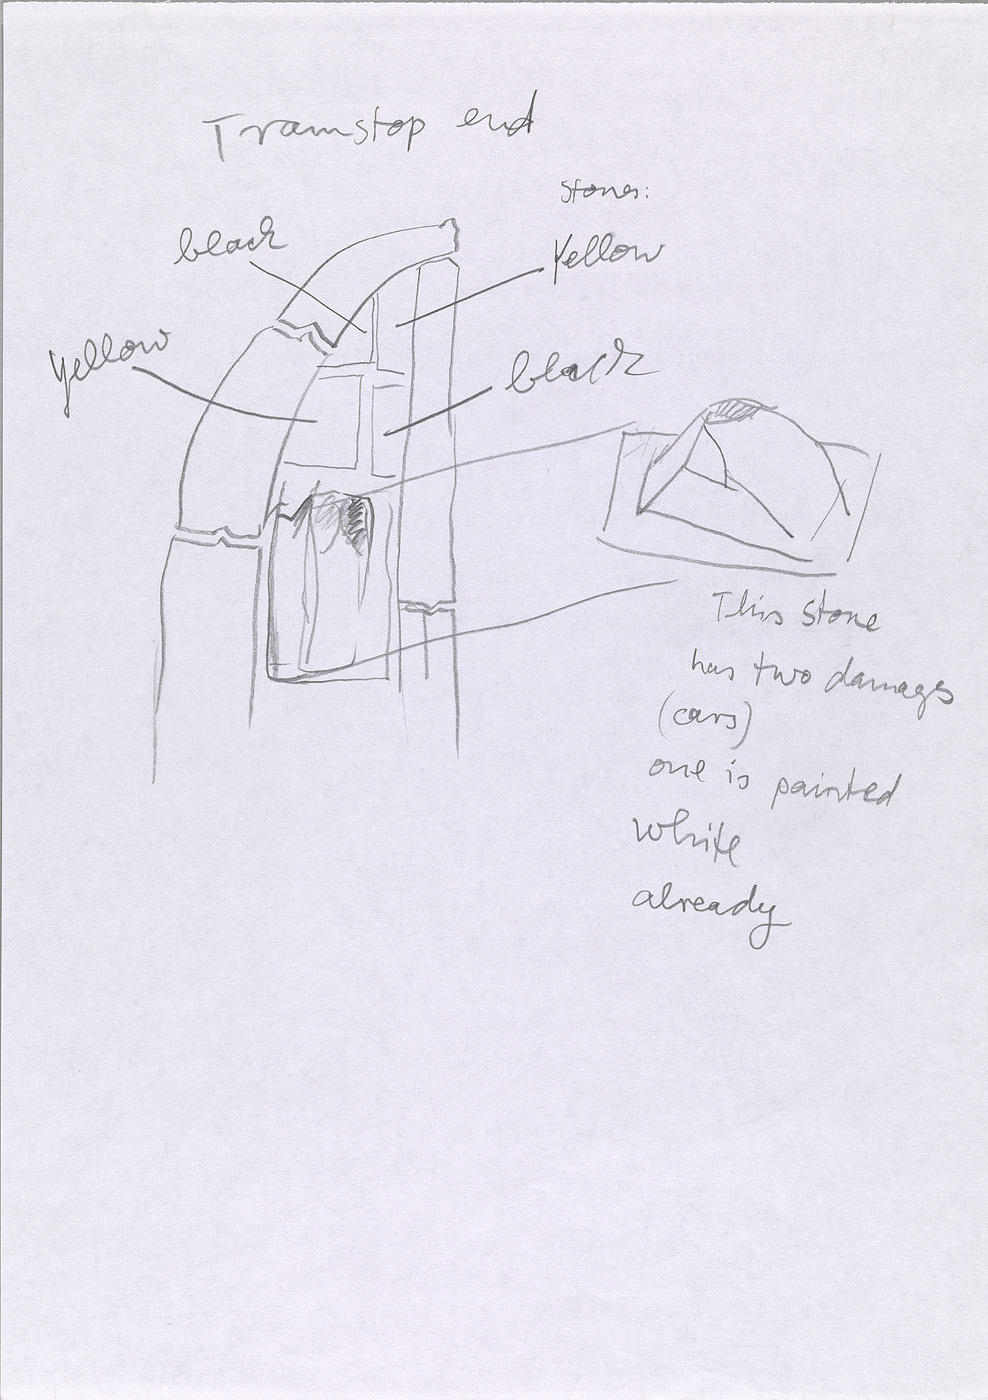 Tramstop end
Stones:
black
Yellow
Yellow
black
This stone
has two damages
(cars)
one is painted
white
already